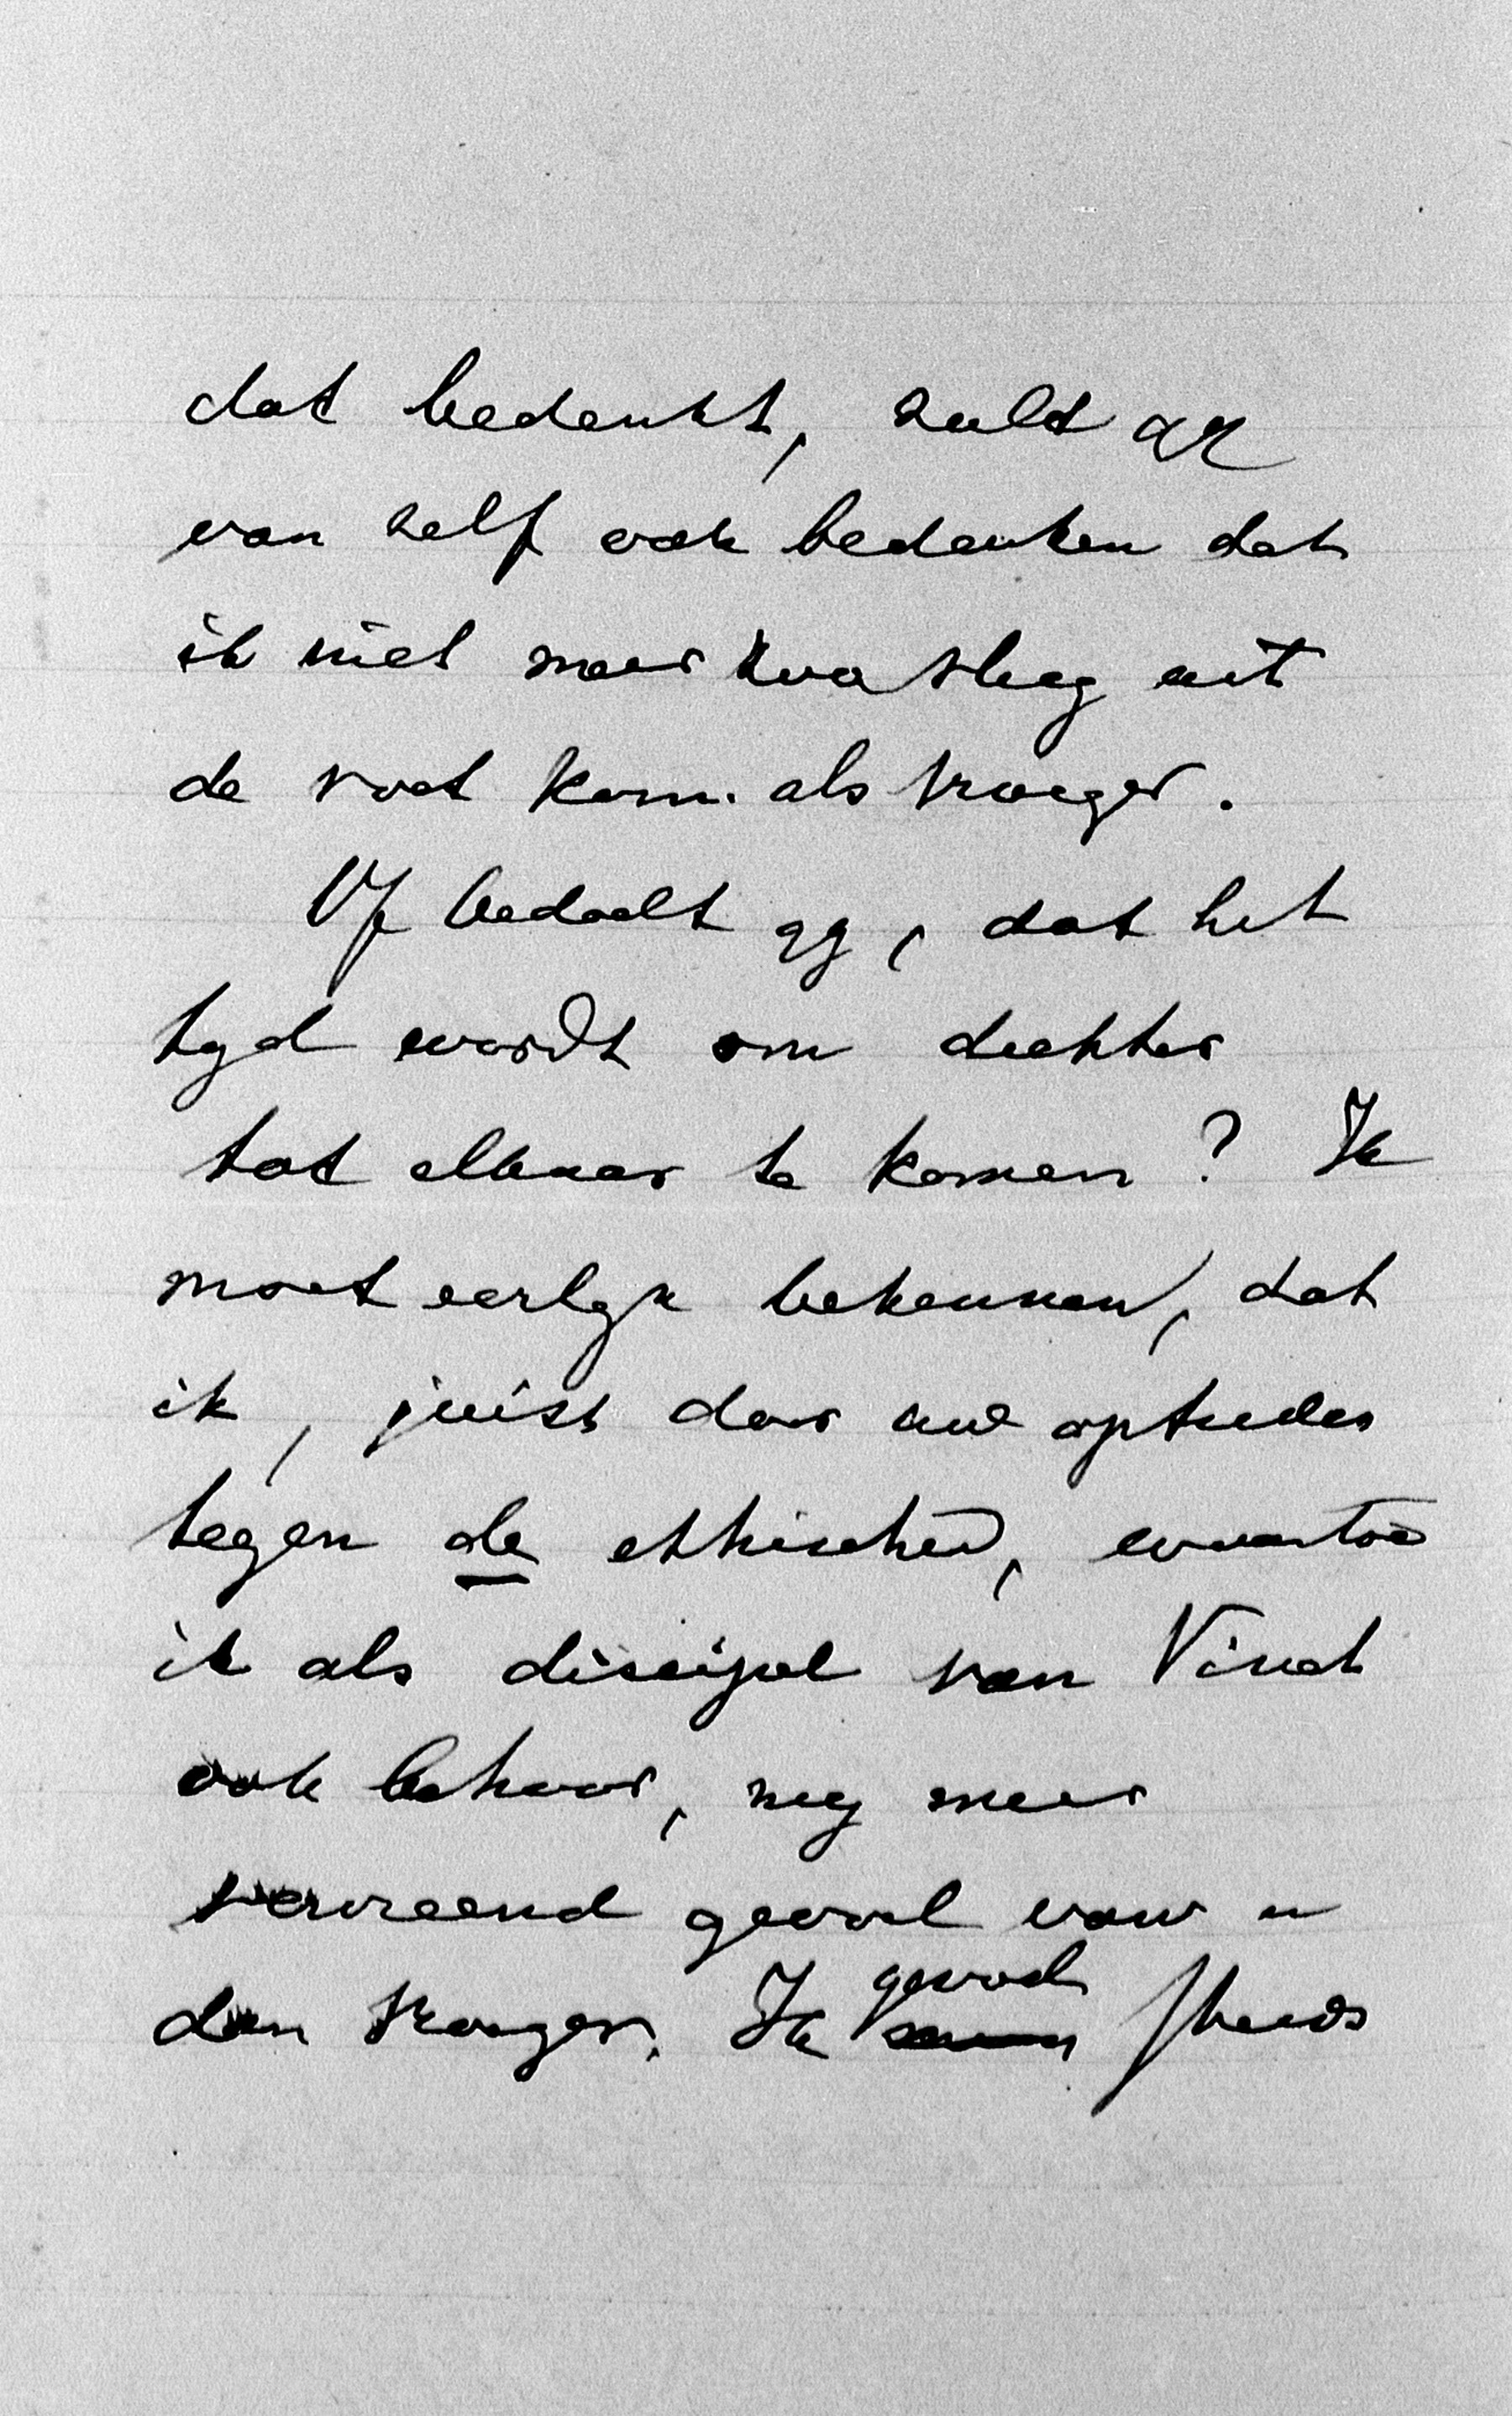 dat bedenkt, zult gy
van zelf ook bedenken dat
ik niet meer zoo vlug uit
de voet kom als vroeger.
Of bedoelt gy, dat het
tyd wordt om dichter
tot elkaar te komen? Ik
moet eerlyk bekennen, dat
ik, juist door uw optreden
tegen de ethischen, waartoe
ik als discipel van Vinet
ook behoor, my meer
vervreemd gevoel van u
dan vroeger. Ik gevoel steeds